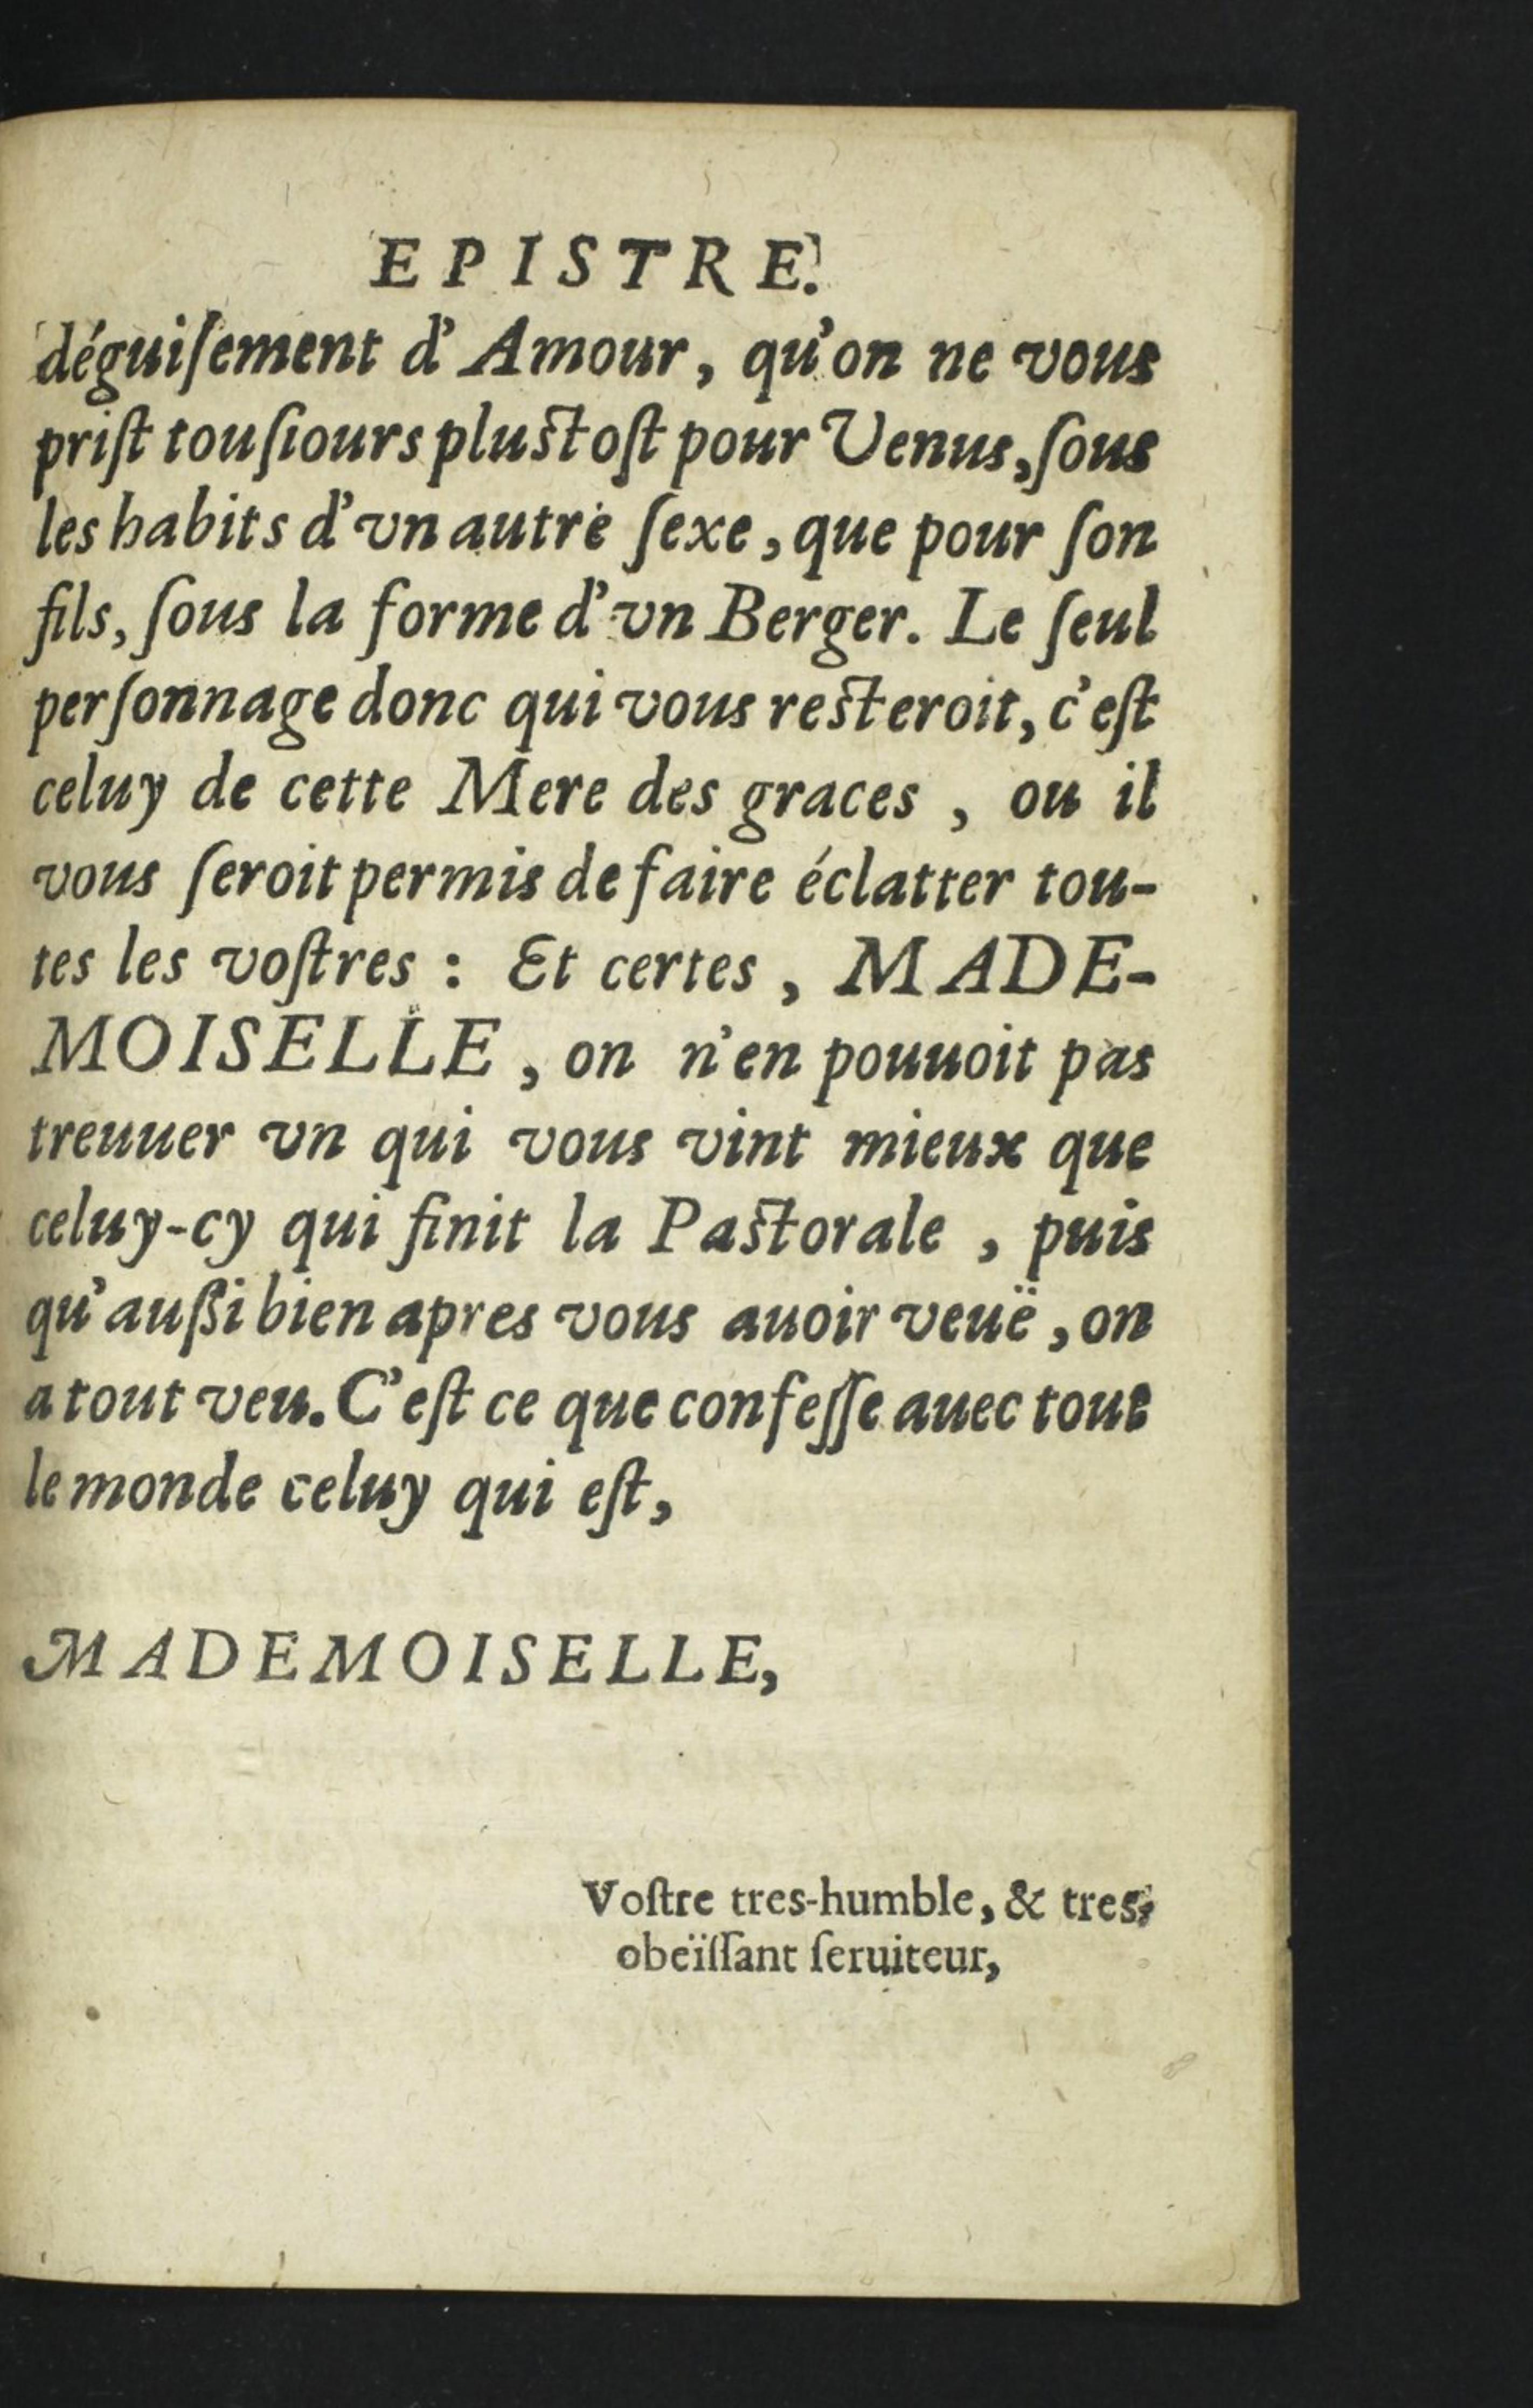 EPISTRE.
déguiſement d'Amour, qu'on ne vous
priſt touſiours pluſtoſt pour Venus, ſous
les habits d'vn autre ſexe, que pour ſon
fils, ſous la forme d'vn Berger. Le ſeul
perſonnage donc qui vous reſteroit, c'eſt
celuy de cette Mere des graces, ou il
vous ſeroit permis de faire éclatter tou-
tes les voſtres : Et certes, MADE-
MOISELLE, on n'en pouuoit pas
treuuer vn qui vous vint mieux que
celuy-cy qui finit la Paſtorale, puis
qu'auſſi bien apres vous auoir veuë, on
a tout veu. C'eſt ce que confeſſe auec tout
le monde celuy qui eſt,
MADEMOISELLE,
Voſtre tres-humble, & tres-
obeïſſant ſeruiteur,